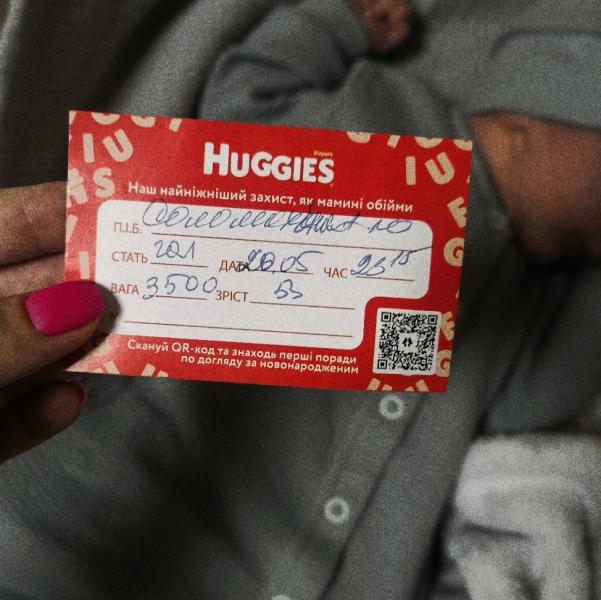 Diapers
HUGGIES
Наш найніжніший захист, як мамині обійми
П.І.Б.
СТАТЬ ДАТА 05 ЧАС 23 15
ВАГА 3500 ЗРІСТ 53
Скануй QR-код та знаходь перші поради
по догляду за новонародженим